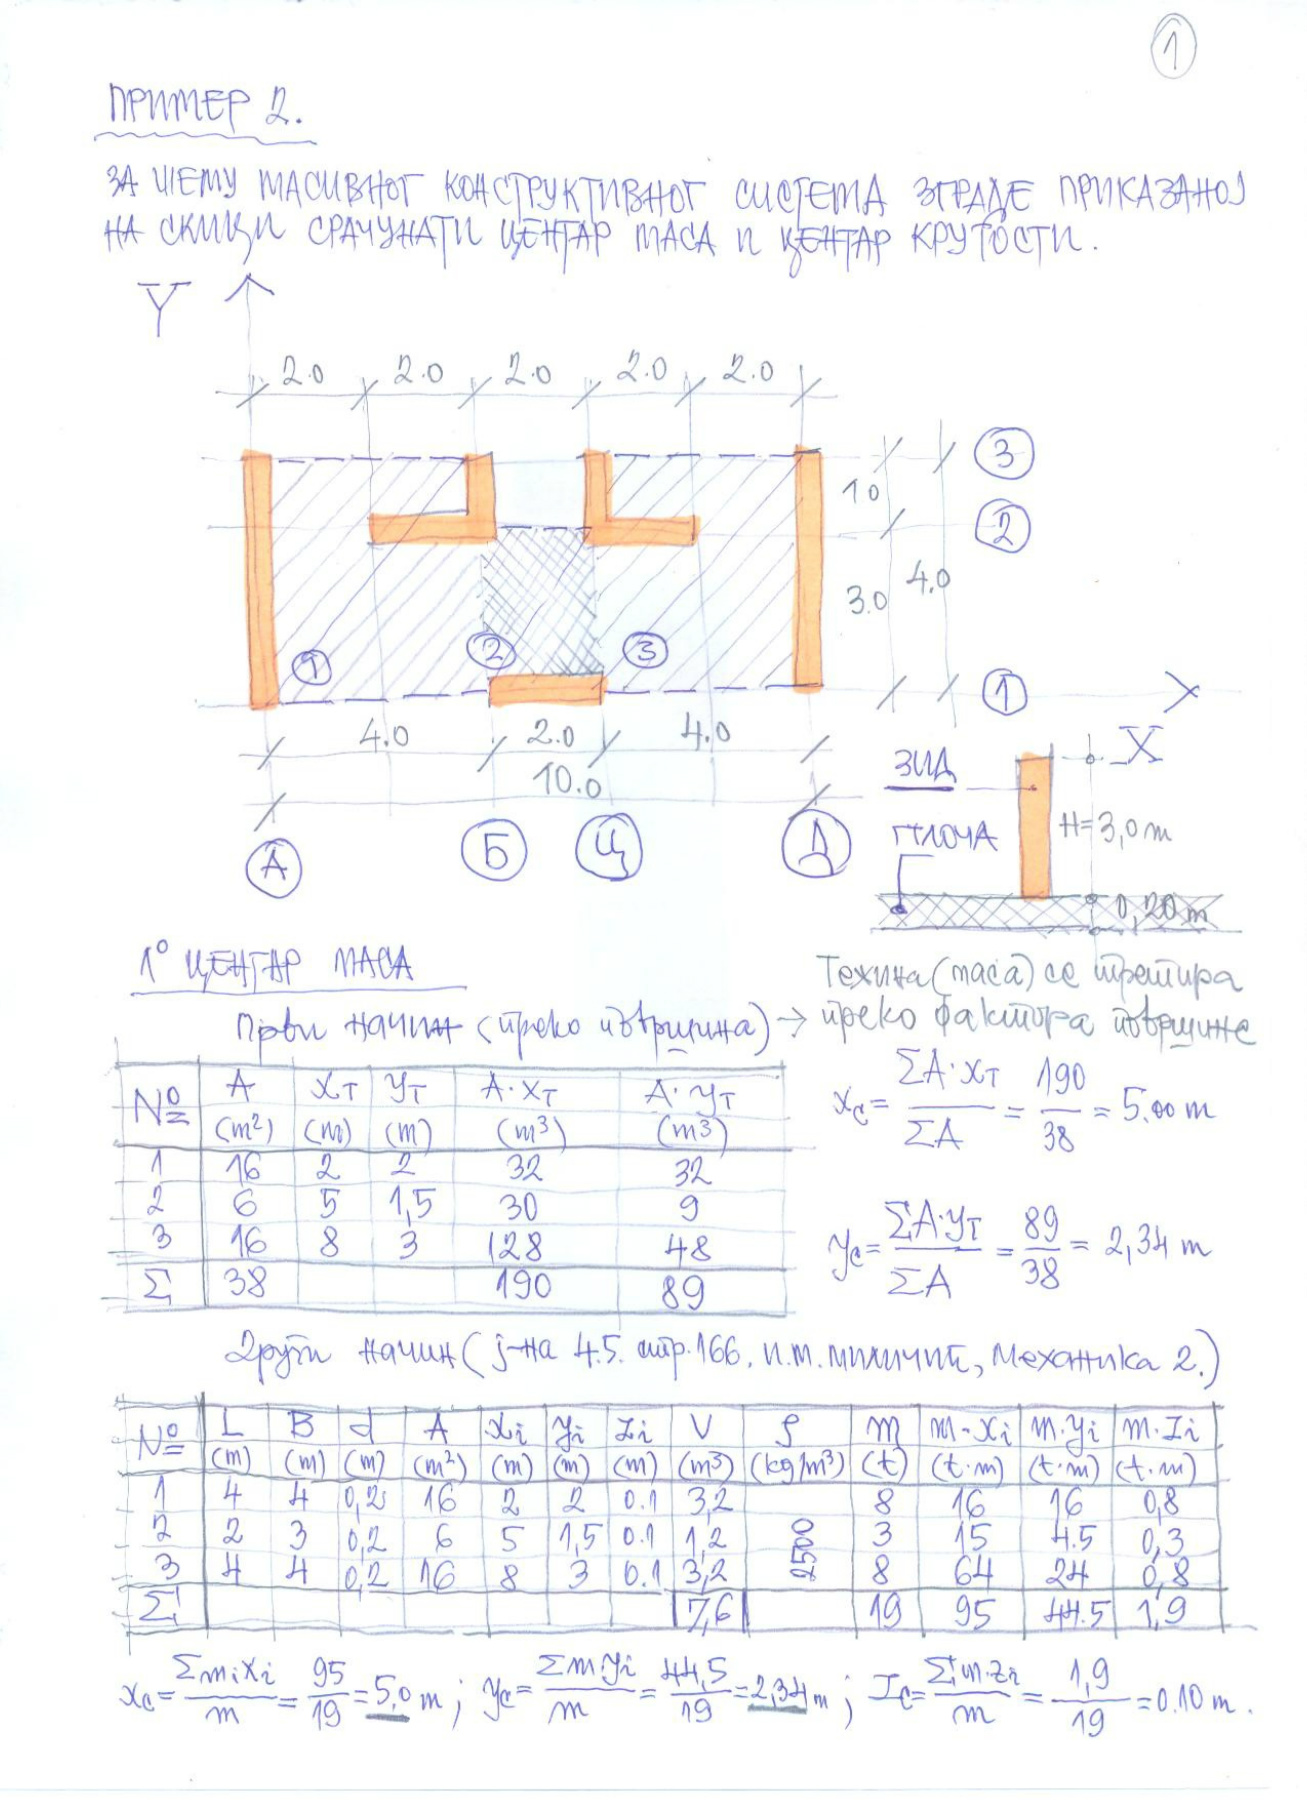 1
ПРИМЕР 2.
ЗА ШЕМУ МАСИВНОГ КОНСТРУКТИВНОГ СИСТЕМА ЗГРАДЕ ПРИКАЗАНОЈ
НА СКИЦИ СРАЧУНАТИ ЦЕНТАР МАСА И ЦЕНТАР КРУТОСТИ.
Y
2.0 2.0 2.0 2.0 2.0
3
1.0
2
3.0 4.0
1 2 3
1
4.0 2.0 4.0
10.0
X
А Б Ц Д
ЗИД
H=3,0 m
ПЛОЧА
0,20 m
1° ЦЕНТАР МАСА
Тежина (маса) се третира
Први начин (преко површина) → преко фактора површине
№ A XT YT A·XT A·YT
(m²) (m) (m) (m³) (m³)
1 16 2 2 32 32
2 6 5 1,5 30 9
3 16 8 3 128 48
Σ 38 190 89
xc = ΣA·XT / ΣA = 190 / 38 = 5.00 m
yc = ΣA·YT / ΣA = 89 / 38 = 2,34 m
Други начин (ј-на 4.5. стр.166, И.М. Миличић, Механика 2.)
№ L B d A xi yi zi V ρ m m·xi m·yi m·zi
(m) (m) (m) (m²) (m) (m) (m) (m³) (kg/m³) (t) (t·m) (t·m) (t·m)
1 4 4 0,2 16 2 2 0.1 3,2 8 16 16 0,8
2 2 3 0,2 6 5 1,5 0.1 1,2 2500 3 15 4.5 0,3
3 4 4 0,2 16 8 3 0.1 3,2 8 64 24 0,8
Σ 7,6 19 95 44.5 1,9
xc = Σmixi / m = 95 / 19 = 5,0 m ; yc = Σmiyi / m = 44,5 / 19 = 2,34 m ; Zc = Σm·zi / m = 1,9 / 19 = 0.10 m.